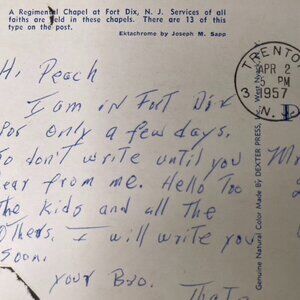 A Regimental Chapel at Fort Dix, N. J. Services of all
faiths are held in these chapels. There are 13 of this
type on the post.
Ektachrome by Joseph M. Sapp
TRENTO
APR 2
5 PM
3 1957
N. J.
Hi Peach
I am in Fort Dix
for only a few days.
So don't write until you
ear from me. Hello Too
the Kids and all the
Others. I will write you
Soon.
your Bro.
Genuine Natural Color Made by DEXTER PRESS, West Nyack